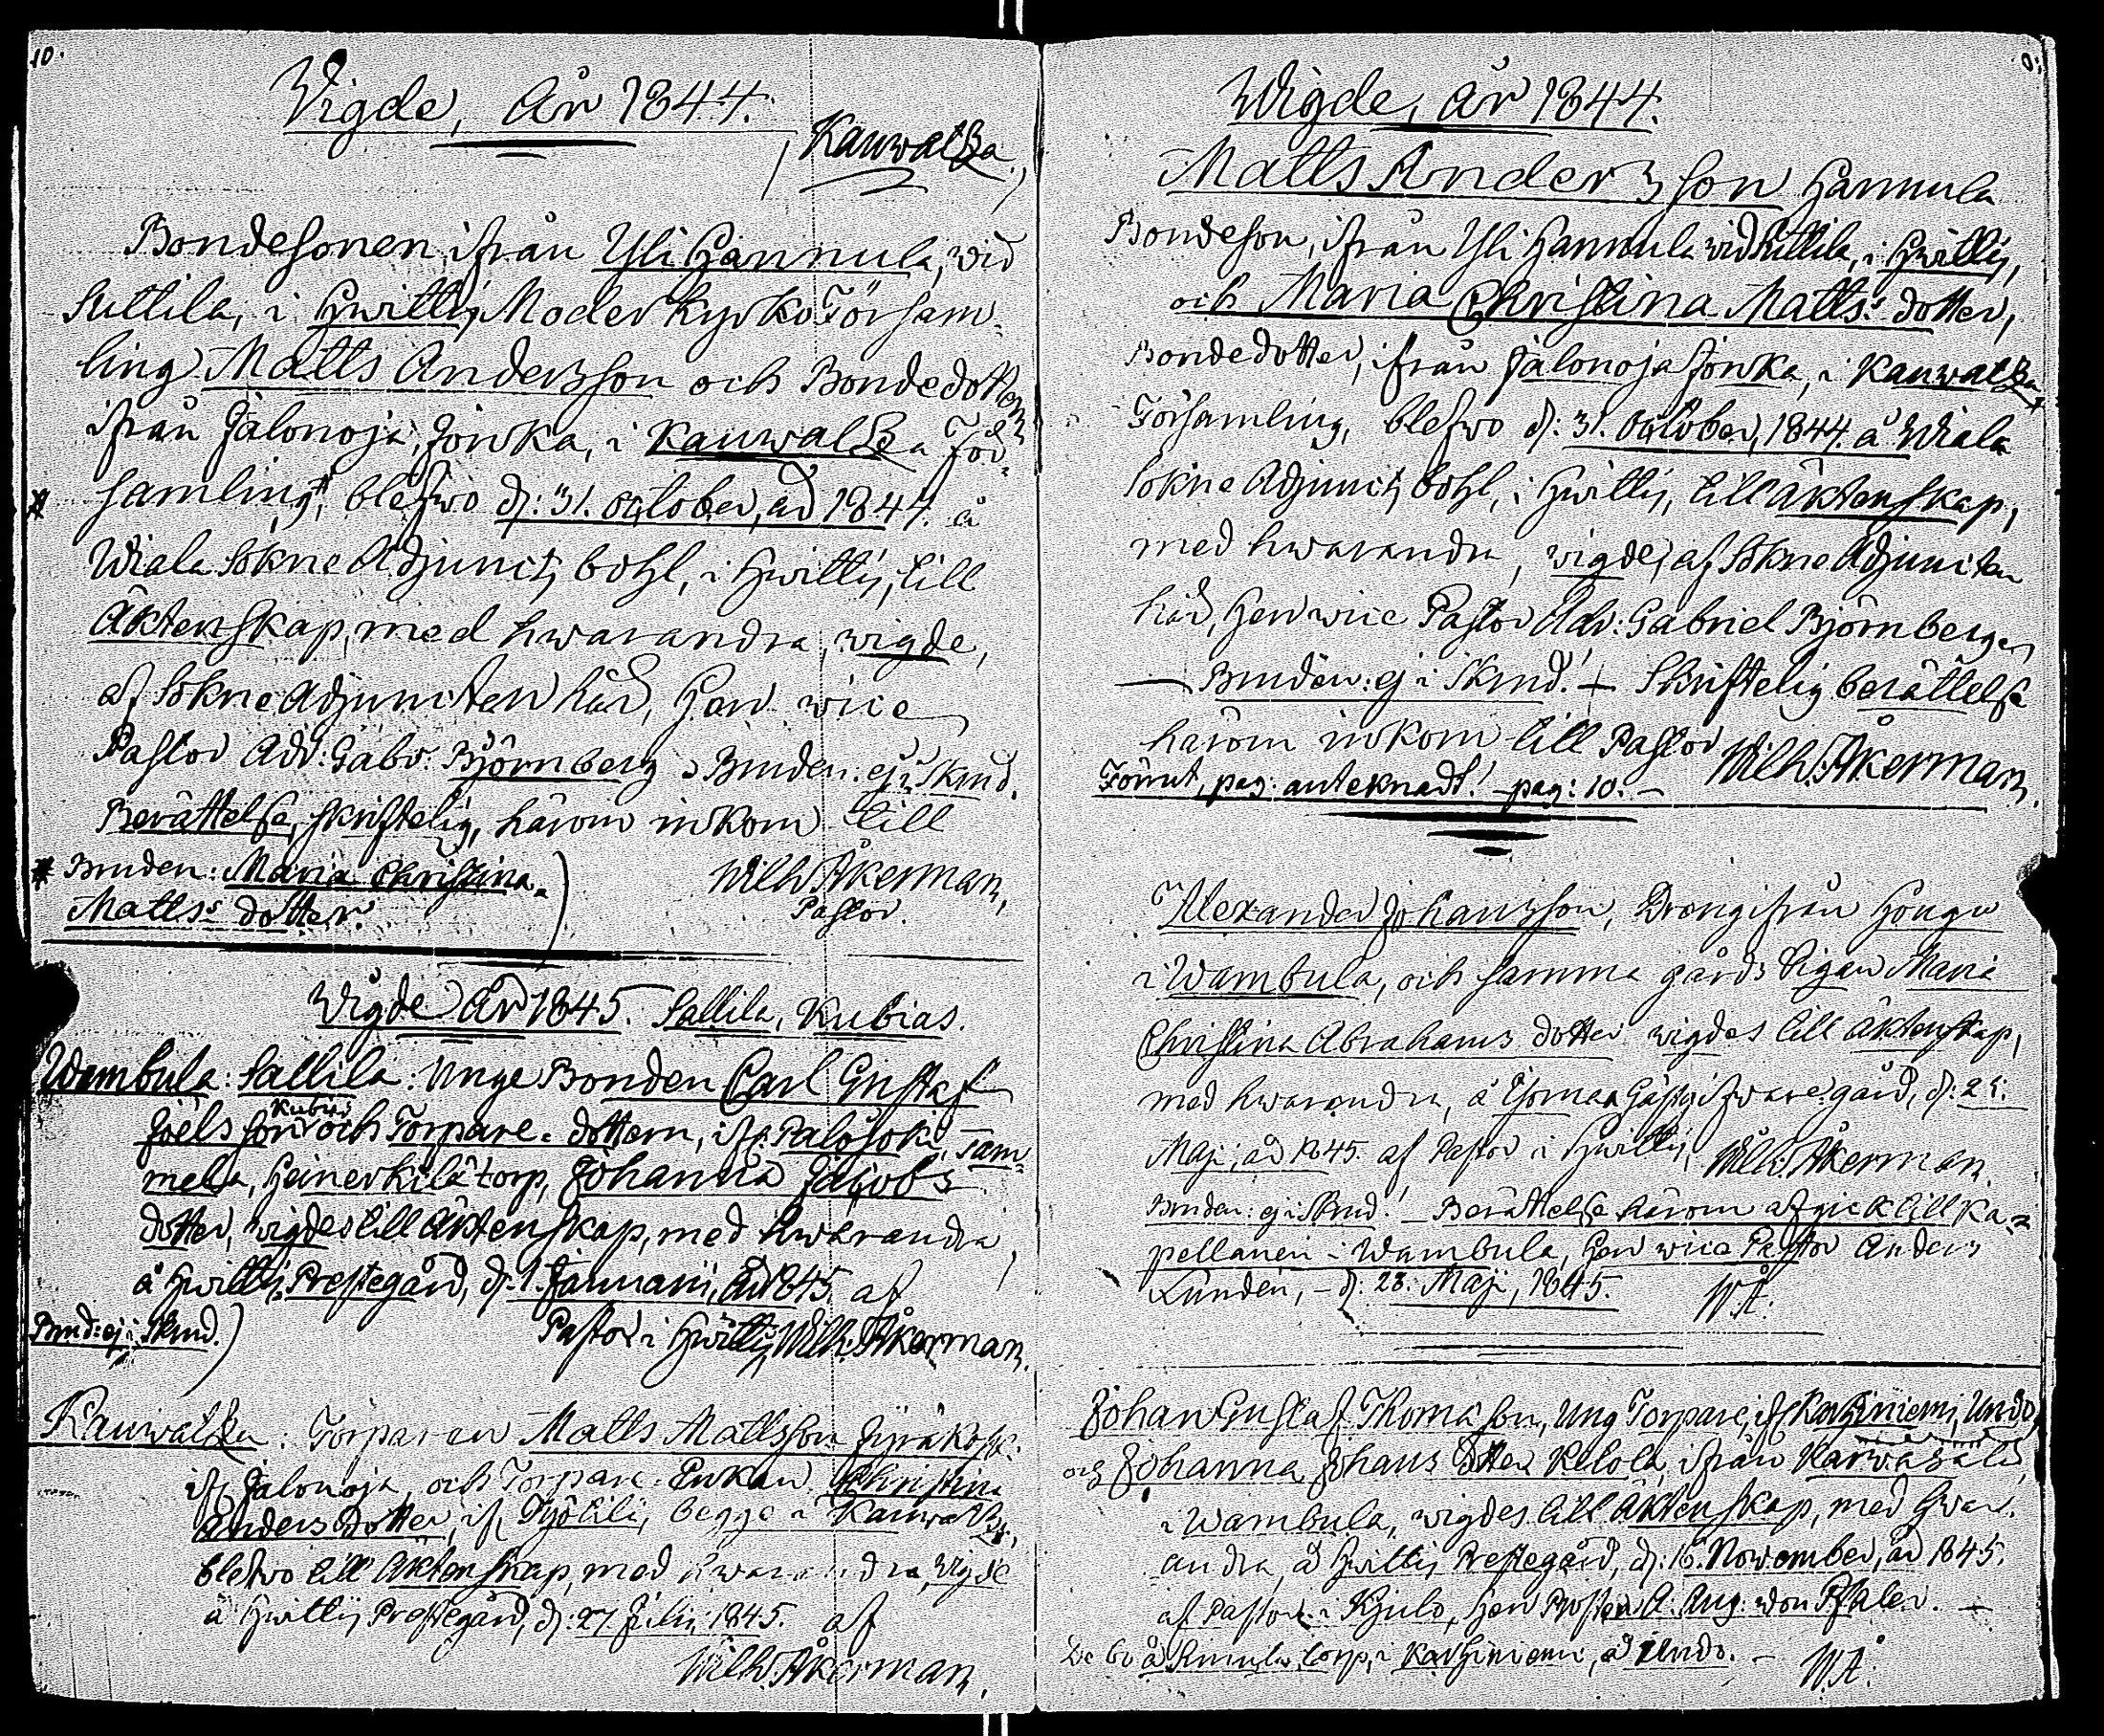 10.
Vigde, År 1844.
Kauwatßa
Bondesonen ifrån Yli Hannula, wid
Suttila, i Hwittis Moderkyrko Försam-
ling Matts Andersson och Bondedottren
ifrån Jalonoja, Jonka, i Kauwatßa För-
samling, blefwo d: 31. october, åd 1844. å
Wiala Sokne Adjuncts bohl, i Hwittis, till
Äktenskap, med hwarandra, wigde,
af Sokne Adjuncten här, Herr vice
Pastor Adr: Gabr: Björnberg. Bruden: ej i Skrud.
Berättelse, skriftelig, härom inkom till
Bruden: Maria Christina
Matts: dotter.
Wilh. Åkerman,
Pastor.
Vigde År 1845. Sallila, Kubias.
Wambula: Sallila: Unge Bonden Carl Gustaf
Joels son Kubias och Torpare-dottern, if: Palojoki, Tam-
mela, Heinerkilä torp, Johanna Jacobs
dotter, wigdes till Äktenskap, med hwarandra,
å Hwittis Prestegård, d: 1. Januarii, åd 1845 af
Brud: ej i Skrud.
Pastor i Hwittis, Wilh: Åkerman.
Kauwatßa: Torparen Matts Mattsson
if: Jalonoja, och Torpare-Enkan Christina
Anders dotter, if: begge i Kauwatßa,
blefwo till Äktenskap, med hwarandra, wigde
å Hwittis Prestegård, d: 27 Julii, 1845. af
Wilh. Åkerman,
Wigde, år 1844.
Matts Andersson Hannula
Bondeson, ifrån Yli Hannula wid Suttila, i Hwittis,
och Maria Christina Matts: dotter,
Bondedotter, ifrån Jalonoja Jonka, i Kauwatßa
Församling, blefwo d: 31. october, 1844. å Wiala
Sokne Adjuncts bohl, i Hwittis, till äktenskap,
med hwarandra, wigde, af Sokne Adjuncten
här, Herr vice Pastor Adr: Gabriel Björnberg.
Bruden: ej i Skrud! Skriftelig berättelse
härom inkom till Pastor Wilh: Åkerman.
Förut, pag: anteknadt! - pag: 10. -
Alexander Johansson, Dreng ifrån Honga
i Wambula, och samma gårds Pigan Maria
Christina Abrahams dotter wigdes till äktenskap,
med hwarandra, å Gästgifware-gård, d: 25:
Maji, åd 1845. af Pastor i Hwittis, Wilh: Åkerman.
Bruden: ej i Skrud! - Berättelse härom afgick till Ka-
pellanen i Wambula, Herr vice Pastor Anders
Lunden, - d: 28. Maji, 1845. W.Å.
Johan Gustaf Thomasson, Ung Torpare, if: Karhiniemi, Undo,
och Johanna Johans dotter Kelola, ifrån
i Wambula, wigdes till äktenskap, med hwar-
andra, å Hwittis Prestegård, d: 16. November, åd 1845.
af Pastorn i Kjulo, Herr Prosten A: Aug: von Pfaler. -
De bo å torp, i Karhiniemi, å Undo. - W.Å.